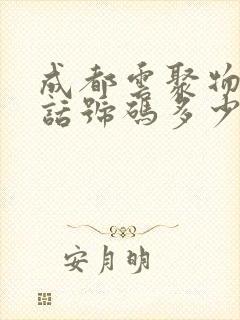 成都雲聚物
話號碼多少
安月明